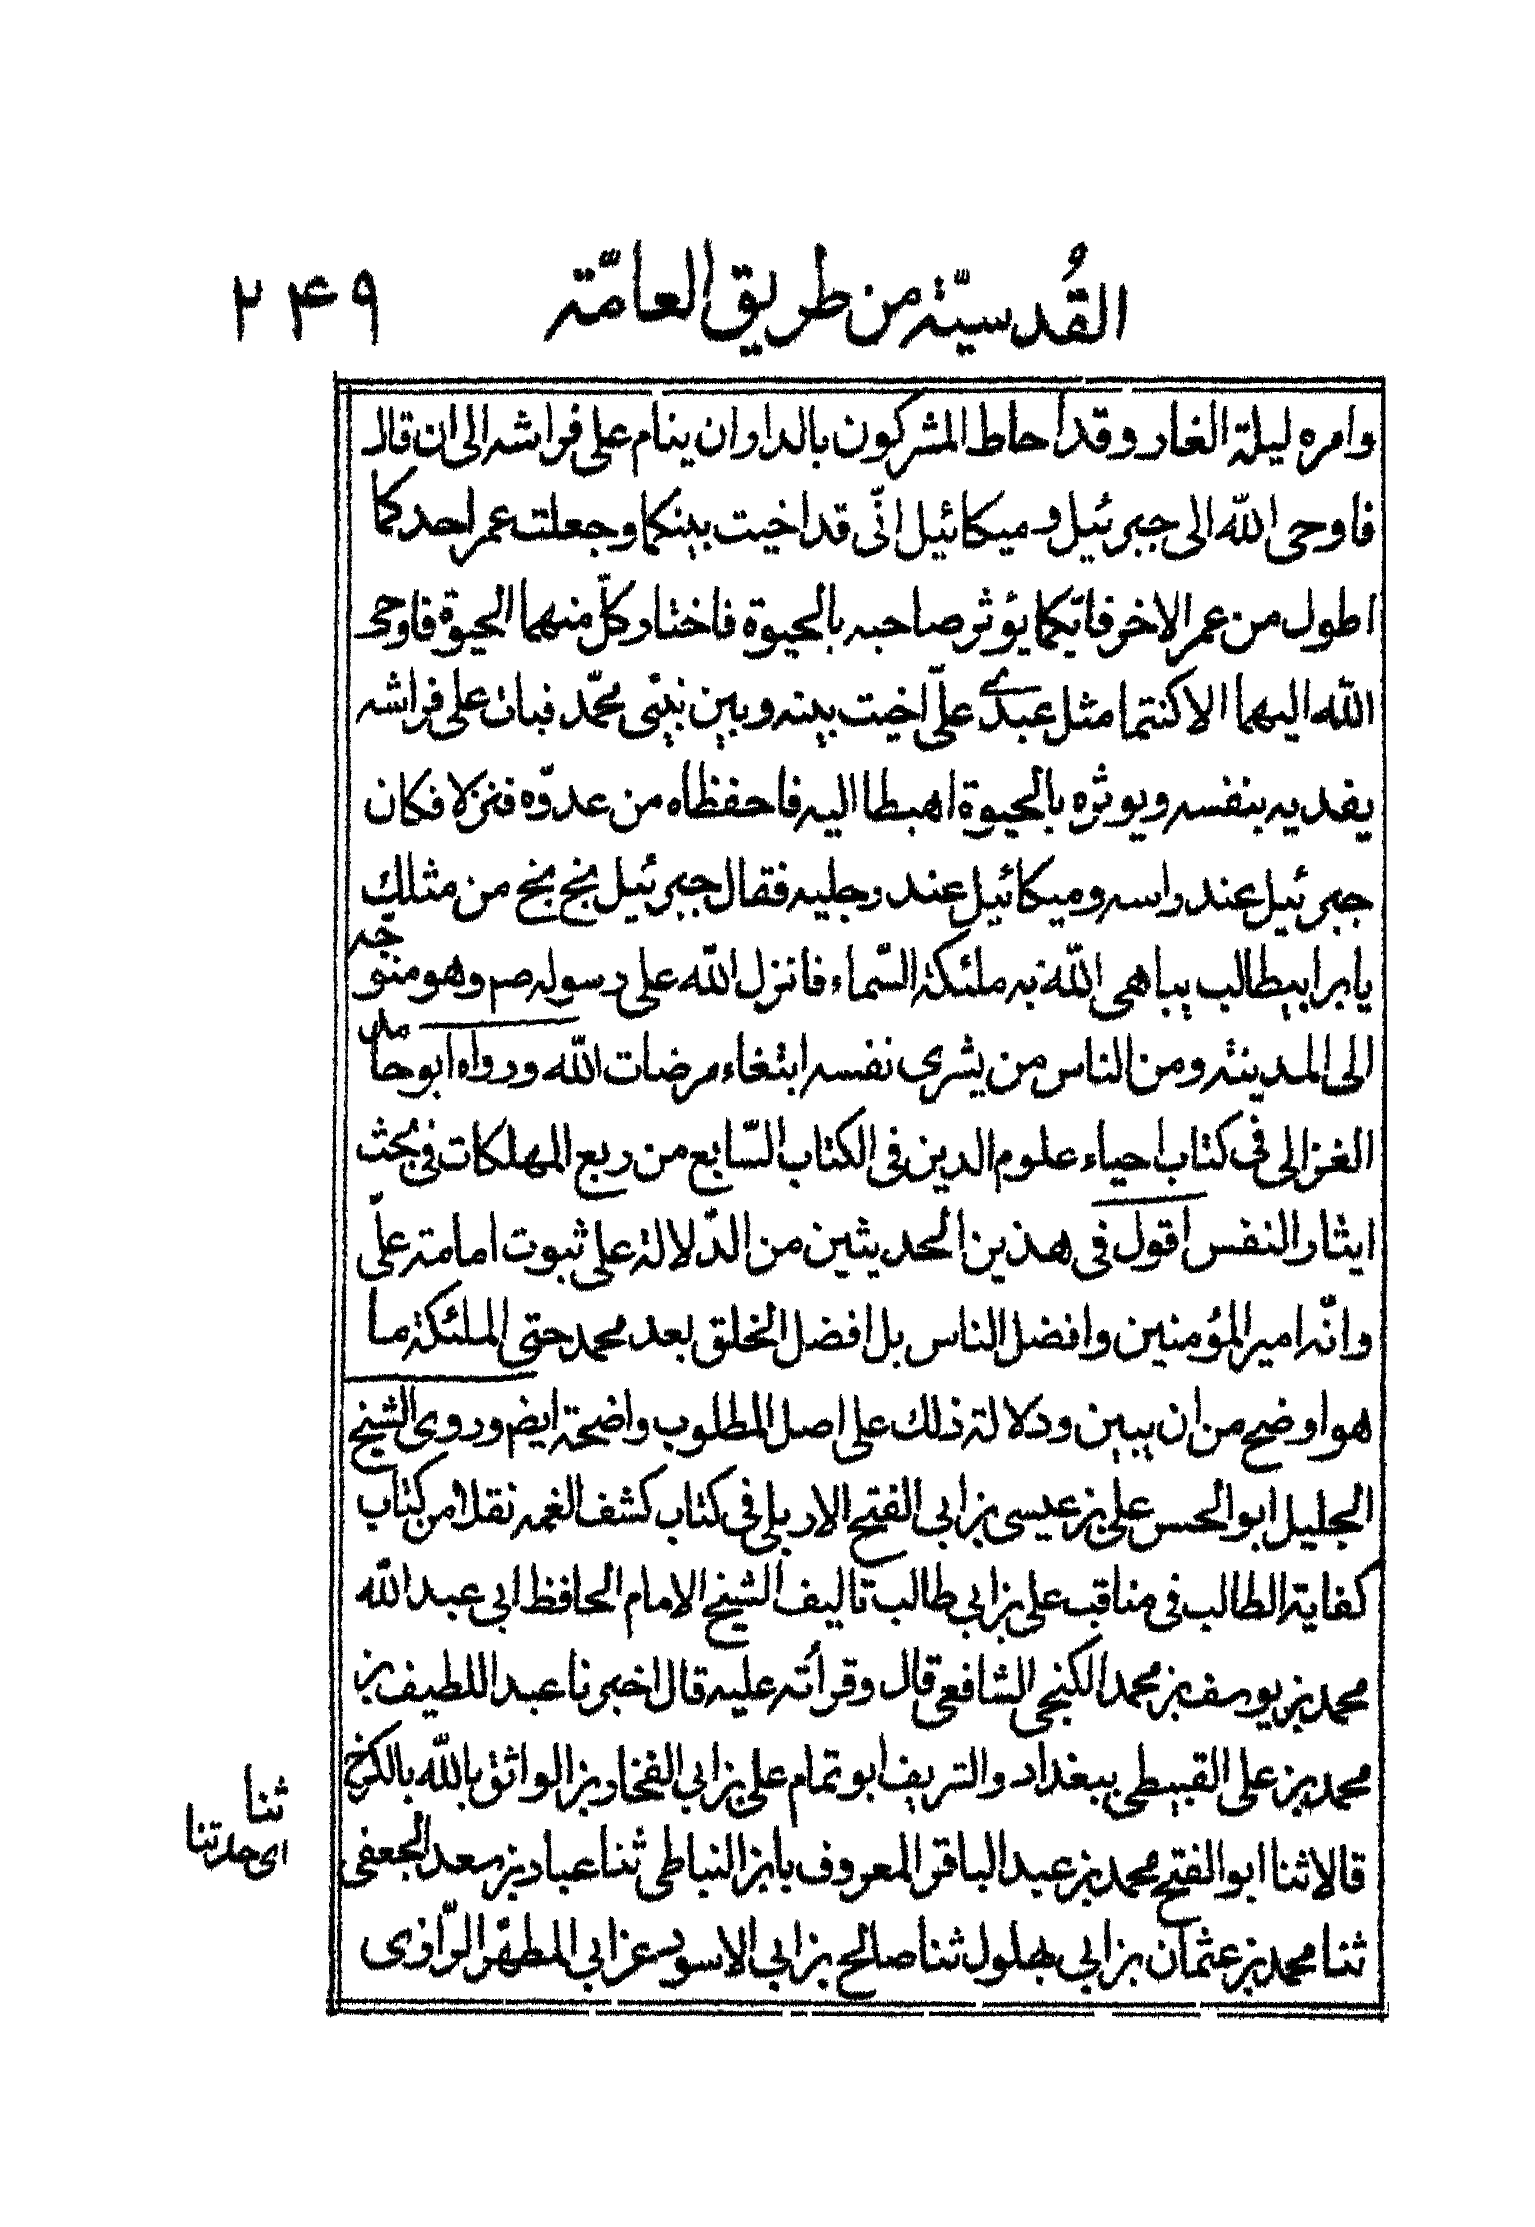 القُدسیّة من طریق العامّة ۲۴۹
وامره لیلة الغار وقد احاط المشرکون بالدار ان ینام علی فراشه الی ان قال
فاوحی الله الی جبرئیل و میکائیل انّی قد اخیت بینکما وجعلت عمر احد کما
اطول من عمر الاخر فایّکما یؤثر صاحبه بالحیوة فاختار کلّ منهما الحیوة فاوحی
الله الیهما الا کنتما مثل عبدی علیّ اخیت بینه وبین نبیّی محمّد فبات علی فراشه
یفدیه بنفسه ویوثره بالحیوة اهبطا الیه فاحفظاه من عدوّه فنزلا فکان
جبرئیل عند راسه ومیکائیل عند رجلیه فقال جبرئیل بخ بخ من مثلک
یابن ابیطالب یباهی الله به ملئکة السّماء فانزل الله علی رسوله ص وهو متوجه
الی المدینة ومن الناس من یشری نفسه ابتغاء مرضات الله ورواه ابو حامد
الغزالی فی کتاب احیاء علوم الدین فی الکتاب السّابع من ربع المهلکات فی بحث
ایثار النفس اقول فی هذین الحدیثین من الدّلالة علی ثبوت امامته علیّ
وانّه امیر المؤمنین وافضل الناس بل افضل الخلق بعد محمد حتی الملئکة ما
هو اوضح من ان یبین ودلالة ذلک علی اصل المطلوب واضحة ایض وروی الشیخ
الجلیل ابو الحسن علی بن عیسی بن ابی الفتح الاربلی فی کتاب کشف الغمه نقلا من کتاب
کفایة الطالب فی مناقب علی بن ابی طالب تالیف الشیخ الامام الحافظ ابی عبد الله
محمد بن یوسف بن محمد الکنجی الشافعی قال وقرأته علیه قال اخبرنا عبد اللطیف بن
محمد بن علی القبیطی ببغداد والشریف ابو تمام علی بن ابی الفخار بن الواثق بالله بالکرخ
قالا ثنا ابو الفتح محمد بن عبد الباقر المعروف بابن النباطی ثنا عباد بن سعد الجعفی
ثنا محمد بن عثمان بن ابی بهلول ثنا صالح بن ابی الاسود عن ابی المطهّر الرّازی
ثنا
ای حدثنا